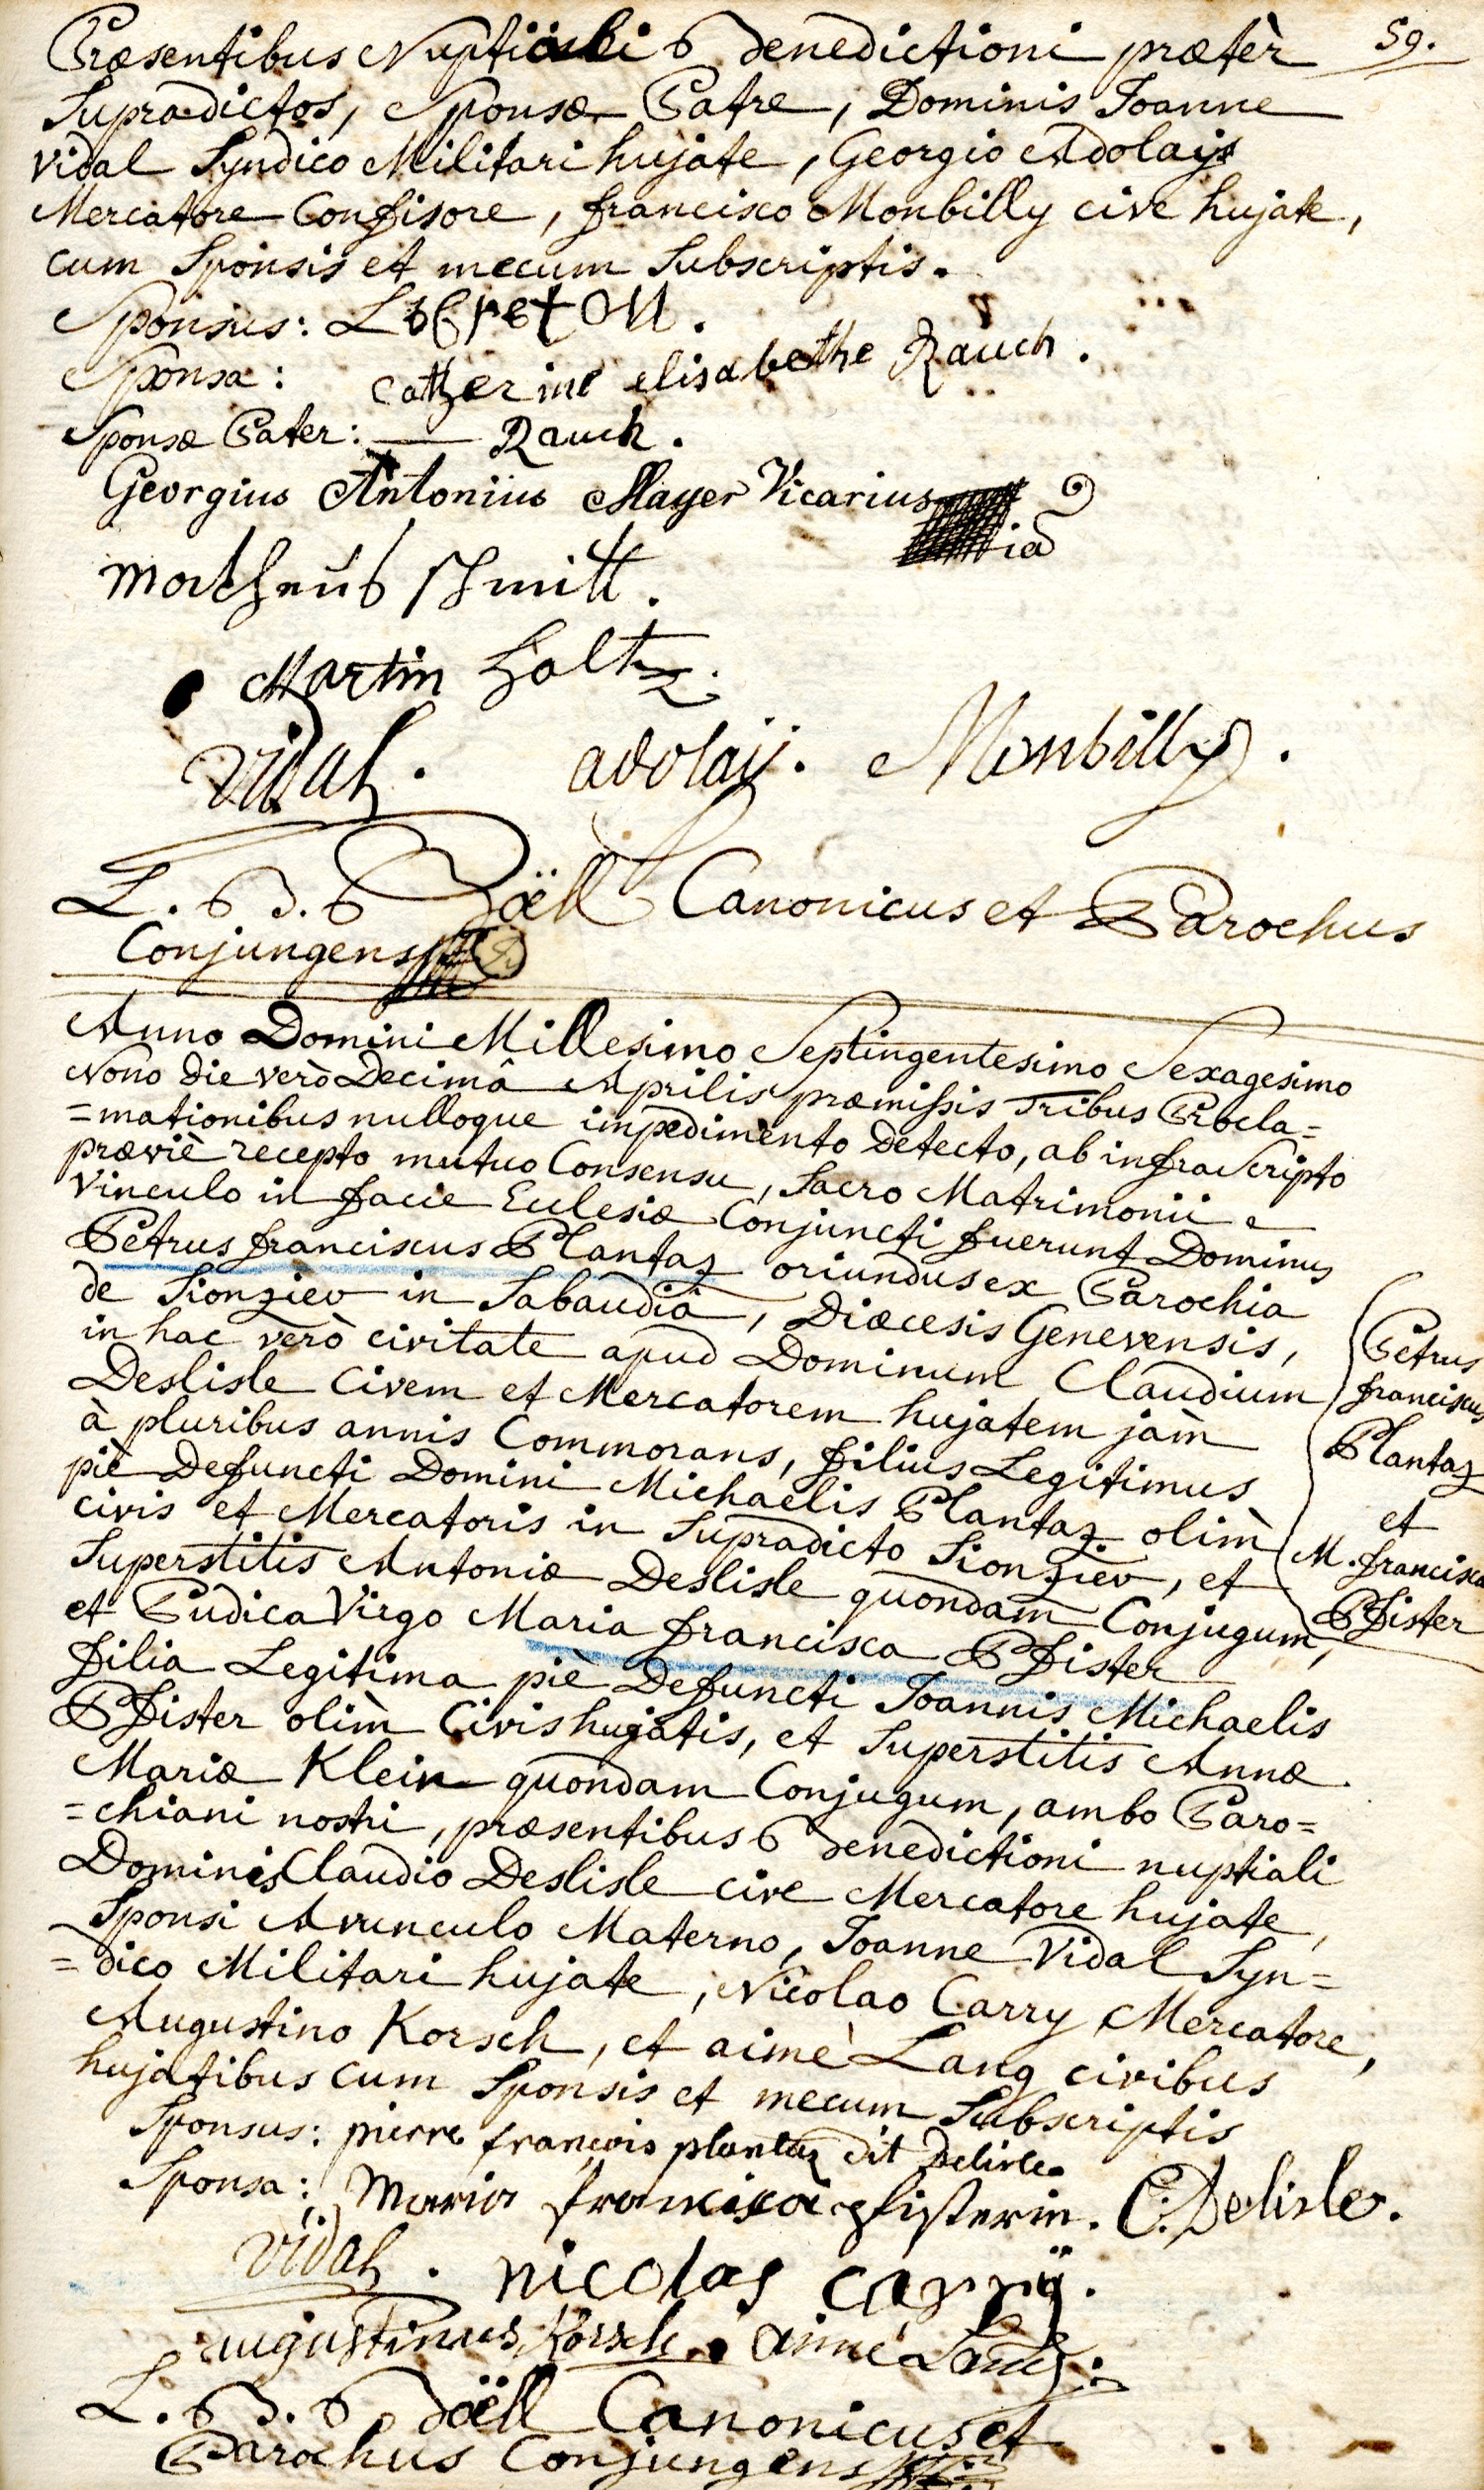 59.
Præsentibus Nuptiali Benedictioni prætèr
Supradictos, Sponsæ Patre, Dominis Joanne
Vidal Syndico Militari hujate, Georgio Adolay
Mercatore Confisore, francisco Monbilly cive hujate,
cum Sponsis et mecum Subscriptis.
Sponsus: LeBreton.
Sponsa: catherine elisabethe Rauch.
Sponsæ Pater: Rauch.
Georgius Antonius Mayer Vicarius
Matheus Schmitt.
Martin Holtz.
Vidal. adolaÿ. Monbilly.
L. B. J. B Doëll Canonicus et Parochus
Conjungens
Anno Domini Millesimo Septingentesimo Sexagesimo
Nono die verò Decimâ Aprilis præmissis Tribus Procla=
=mationibus nulloque impedimento Detecto, ab infraScripto
præviè recepto mutuo Consensu, Sacro Matrimonii
Vinculo in facie Eclesiæ Conjuncti fuerunt Dominus
Petrus franciscus Plantaz oriundus ex Parochia
de Sionziev in Sabaudiâ, Diœcesis Genevensis,
in hac verò civitate apud Dominum Claudium
Deslisle Civem et Mercatorem hujatem jàm
à pluribus annis Commorans, filius Legitimus
piè Defuncti Domini Michaelis Plantaz olìm
civis et Mercatoris in Supradicto Sionziev, et
Superstitis Antoniæ Deslisle quondam Conjugum,
et Pudica Virgo Maria francisca Pfister
filia Legitima piè Defuncti Joannis Michaelis
Pfister olìm Civis hujatis, et Superstitis Annæ
Mariæ Klein quondam Conjugum, ambo Paro=
=chiani nostri, præsentibus Benedictioni nuptiali
Dominis Claudio Deslisle cive Mercatore hujate,
Sponsi Avunculo Materno, Joanne Vidal Syn=
=dico Militari hujate, Nicolao Carry Mercatore,
Augustino Korsch, et aimè Lang civibus
hujatibus cum Sponsis et mecum Subscriptis
Sponsus: pierre françois plantaz dit Delisle.
Sponsa: Maria francisca pfisterin. C. Delisle.
Vidal. nicolas carrÿ.
augustinus Korsch. aimé Lang.
L. B. J. B Doëll Canonicus et
Parochus Conjungens
Petrus
franciscus
Plantaz
et
M. francisca
Pfister